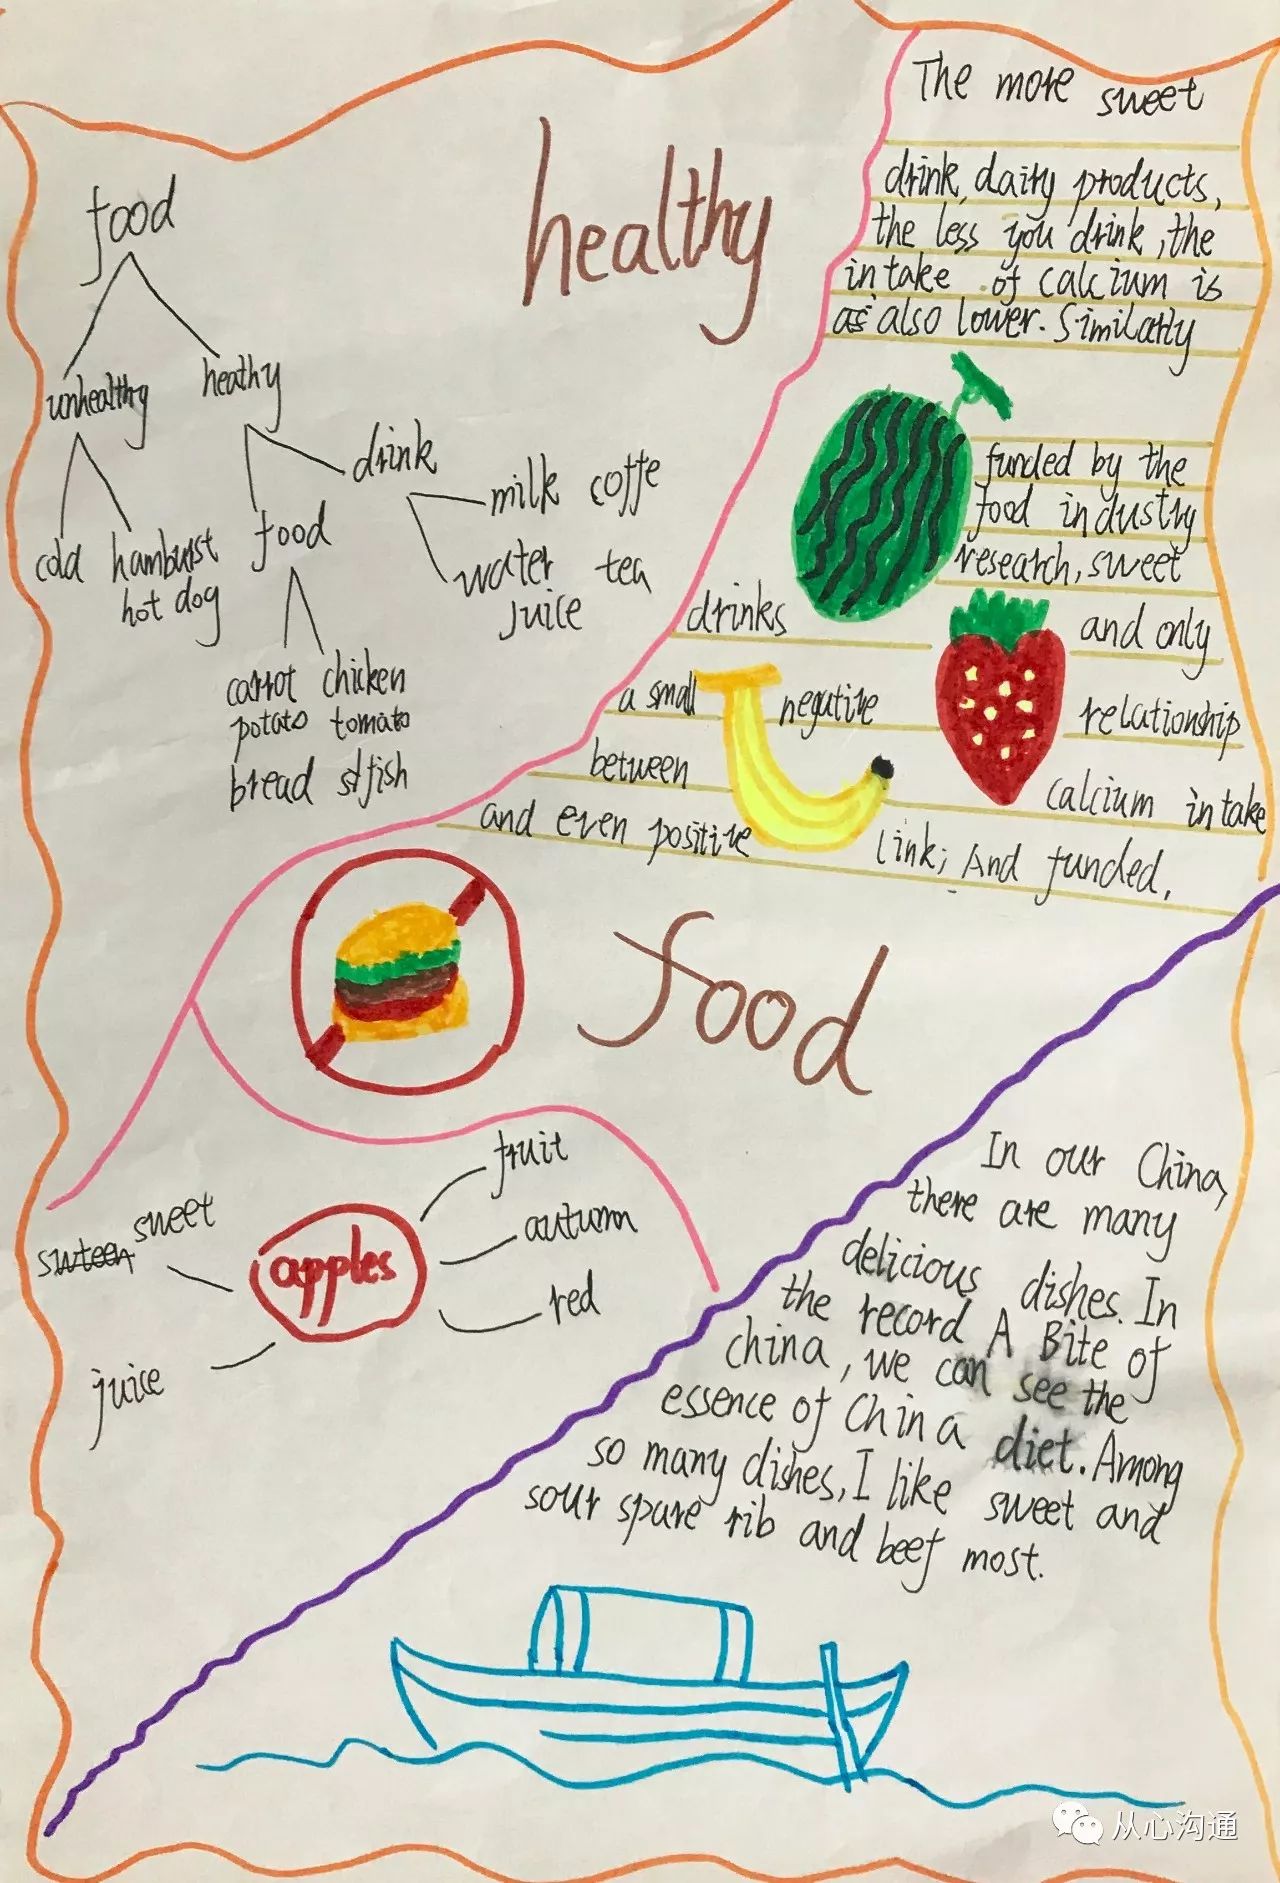 healthy
food
food
unhealthy heathy
cold hamburst
hot dog
drink
milk coffe
water tea
juice
food
carrot chicken
potato tomato
bread fish
The more sweet
drink, dairy products,
the less you drink, the
intake of calcium is
also lower. Similarly
funded by the
food industry
research, sweet
drinks and only
a small negative relationship
between calcium intake
and even positive link; And funded.
fruit
sweet
autumn
apples
red
juice
In our China,
there are many
delicious dishes. In
the record A Bite of
china, we can see the
essence of China diet. Among
so many dishes, I like sweet and
sour spare rib and beef most.
从心沟通